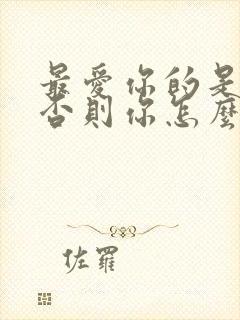 最愛你的是
否則你怎麼
佐羅